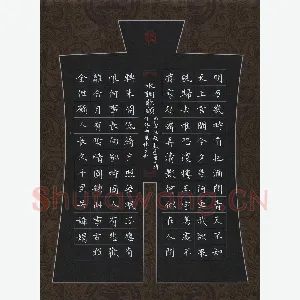 明月幾時有把酒問青天不知
天上宮闕今夕是何年我欲乘
風歸去恐瓊樓玉宇高處不
勝寒起舞弄清影何似在人間
水調歌頭
轉朱閣低綺戶照無眠不應有
恨何事長向別時圓人有悲歡
離合月有陰晴圓缺此事古難
全但願人長久千里共嬋娟